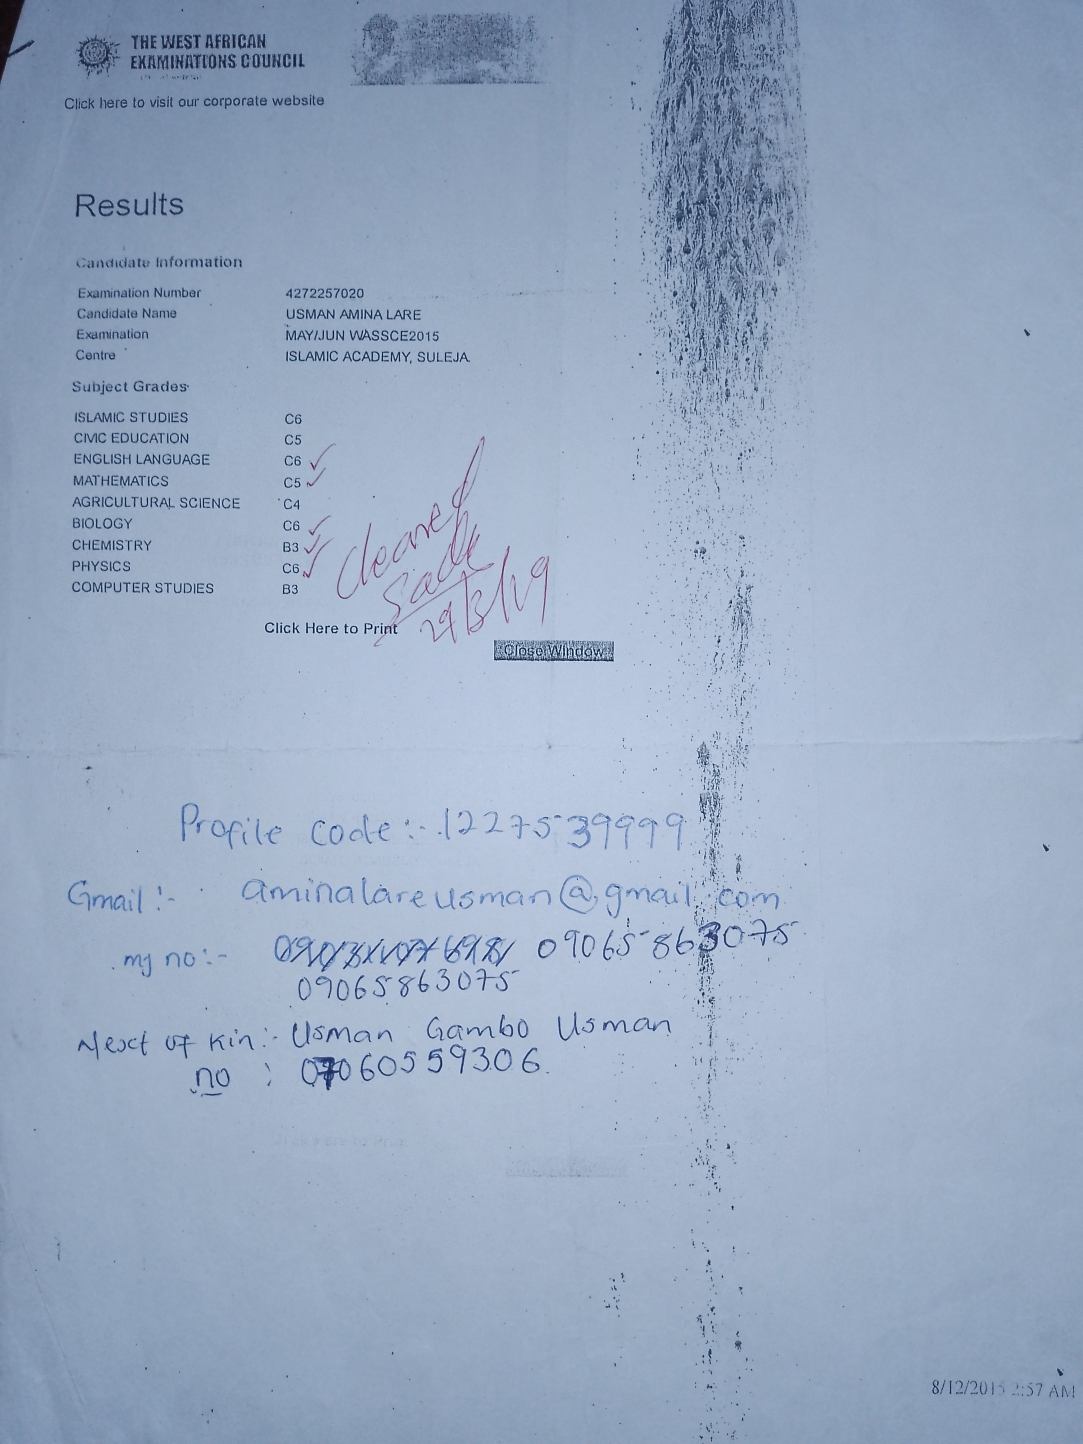 THE WEST AFRICAN
EXAMINATIONS COUNCIL
Click here to visit our corporate website
Results
Candidate Information
Examination Number 4272257020
Candidate Name USMAN AMINA LARE
Examination MAY/JUN WASSCE2015
Centre ISLAMIC ACADEMY, SULEJA
Subject Grades
ISLAMIC STUDIES C6
CIVIC EDUCATION C5
ENGLISH LANGUAGE C6
MATHEMATICS C5
AGRICULTURAL SCIENCE C4
BIOLOGY C6
CHEMISTRY B3
PHYSICS C6
COMPUTER STUDIES B3
Cleared
29/3/19
Click Here to Print
Close Window
Profile code:- 1227539999
Gmail:- aminalareusman@gmail.com
my no:- 09065863075
09065863075
Next of Kin:- Usman Gambo Usman
no : 07060559306
8/12/2015 2:57 AM